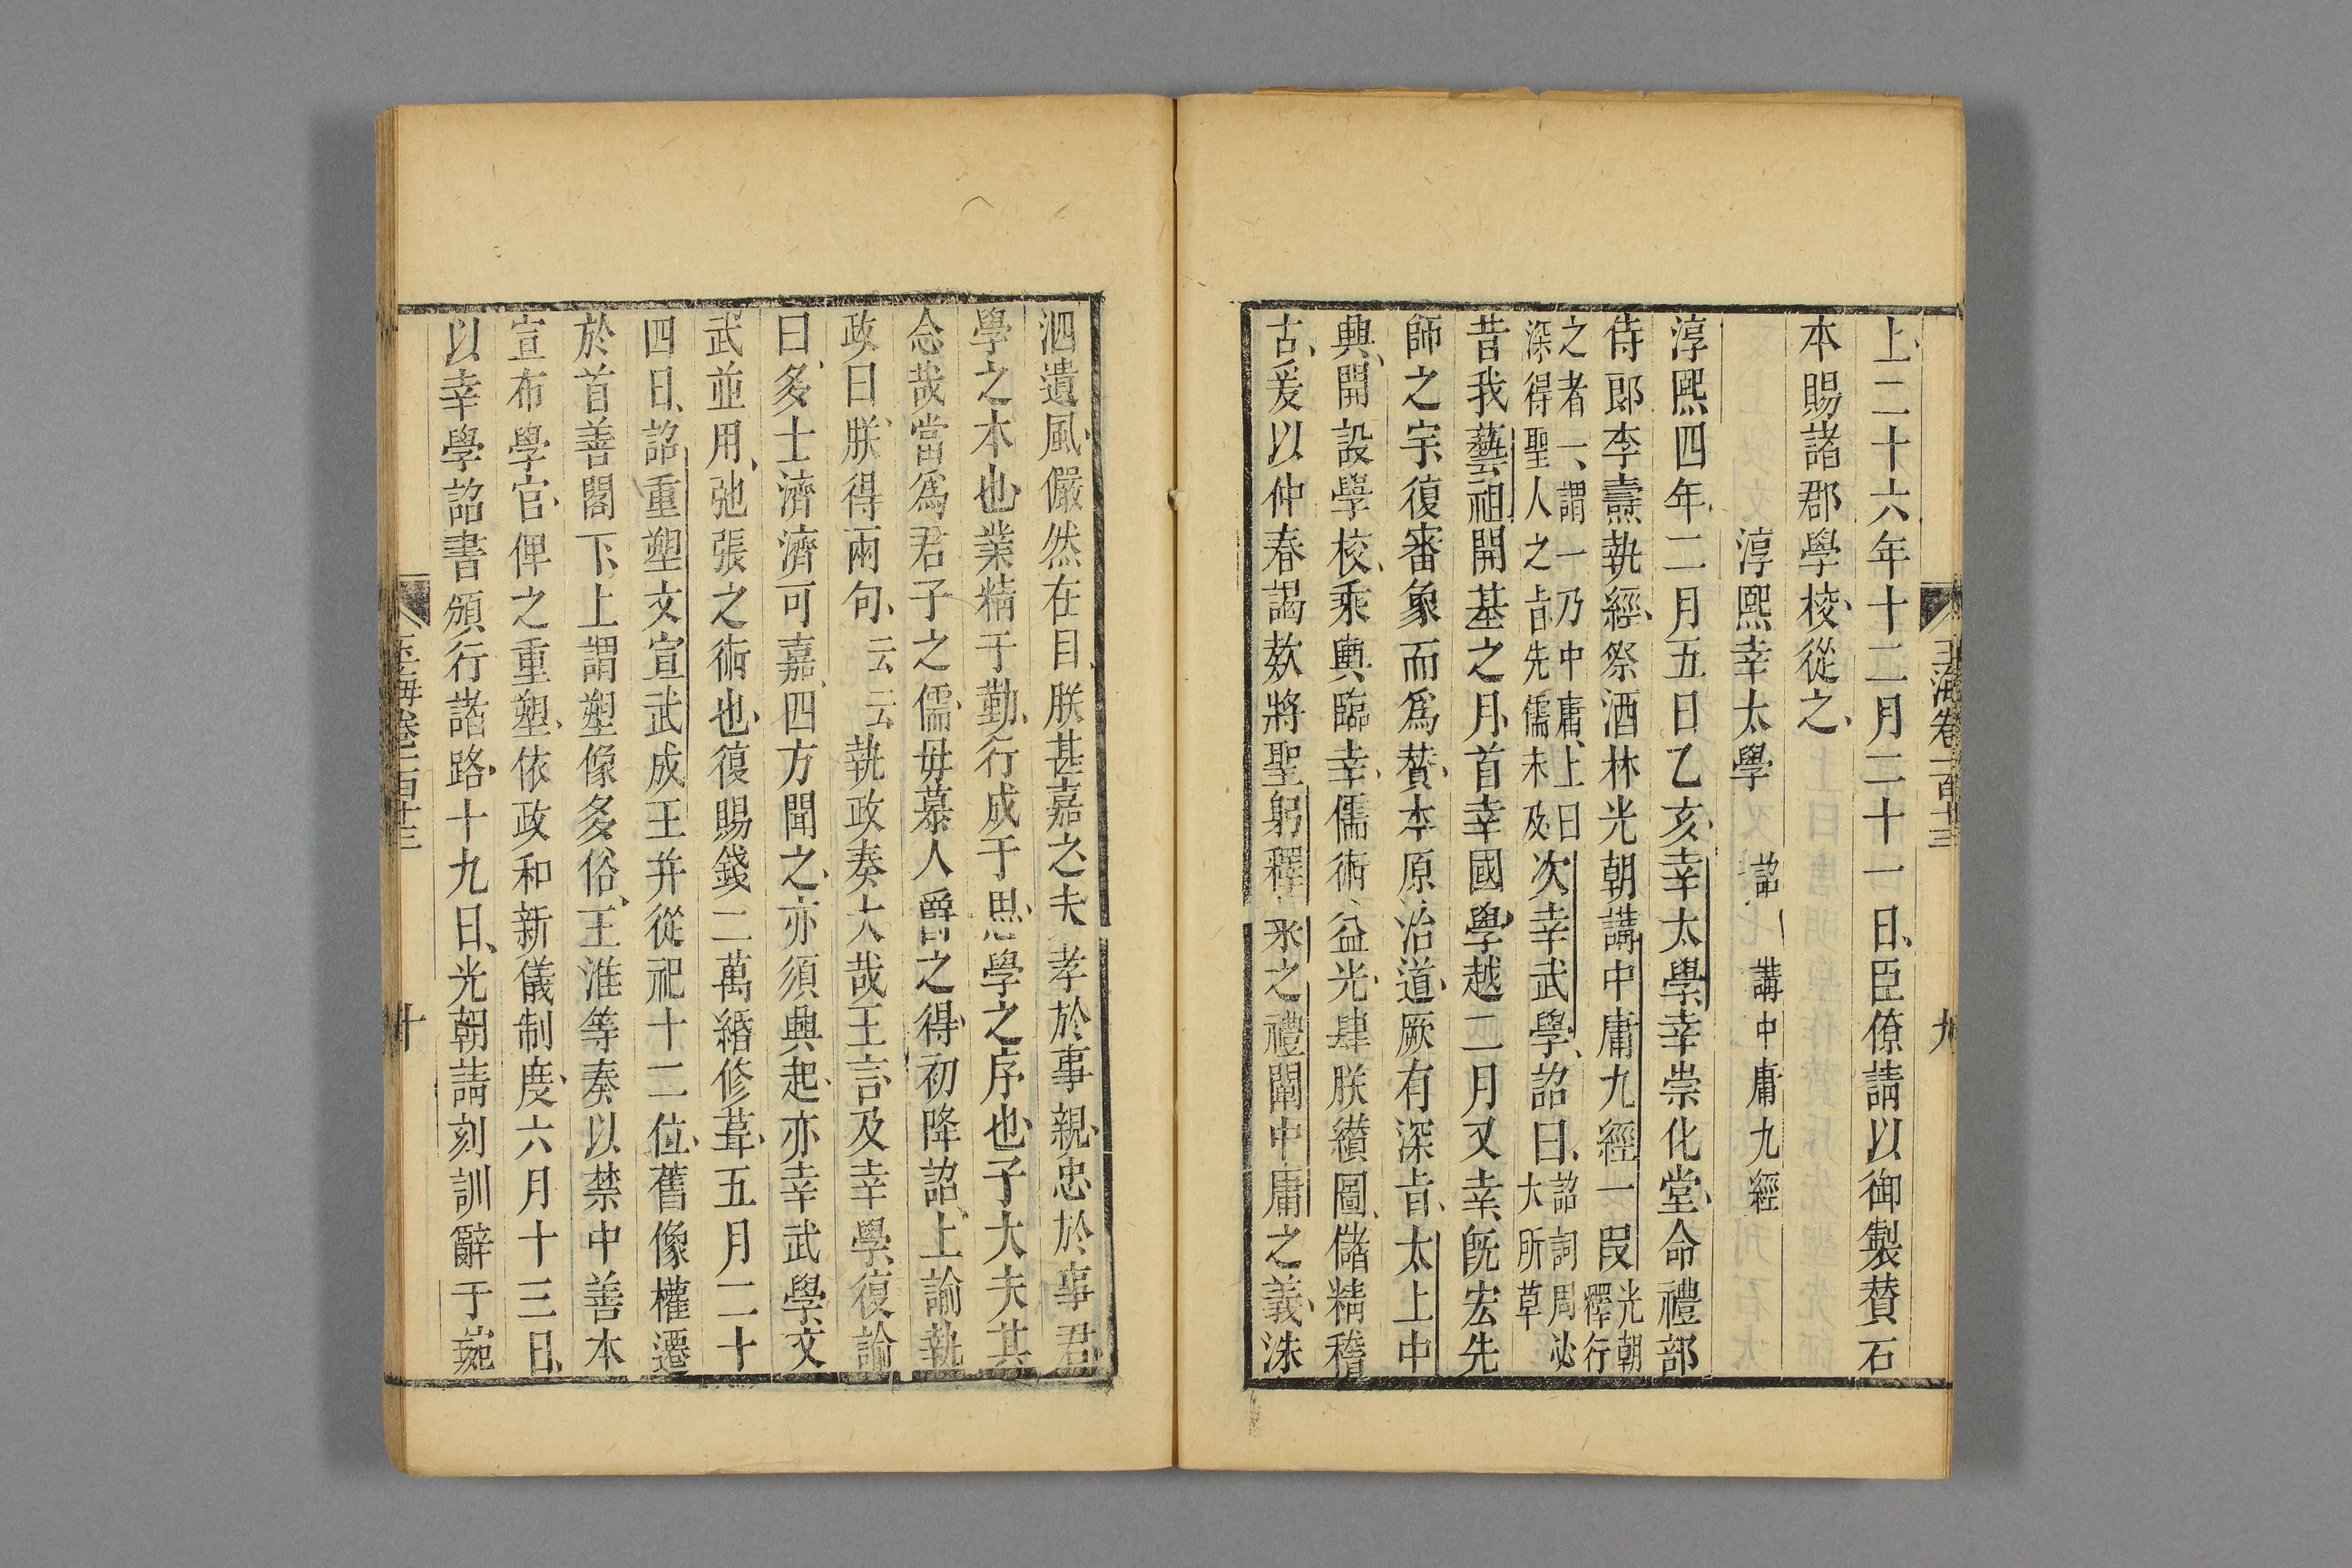 玉海卷一百十三
九
上二十六年十二月二十一日、臣僚請以御製賛石
本賜諸郡學校、從之、
淳熙幸太學 詔 講中庸九經
淳熙四年、二月五日乙亥、幸太學、幸崇化堂、命禮部
侍郎李燾執經、祭酒林光朝講中庸九經一段光朝釋行
之者一、謂一乃中庸、上曰深得聖人之旨先儒未及次幸武學、詔曰、詔詞周必大所草
昔我藝祖開基之月、首幸國學、越二月又幸、旣宏先
師之宗、復審象而爲賛、本原治道、厥有深旨、太上中
典、開設學校、乘輿臨幸、儒術益光、肆朕纘圖、儲精稽
古、爰以仲春謁欵將聖躬釋采之禮闡中庸之義、洙
泗遺風、儼然在目、朕甚嘉之夫孝於事親、忠於事君、
學之本也、業精于勤、行成于思、學之序也、子大夫其
念哉當爲君子之儒、毋慕人爵之得、初降詔、上諭執
政曰、朕得兩句、云云執政奏大哉王言、及幸學、復諭
曰、多士濟濟可嘉、四方聞之、亦須興起、亦幸武學、文
武並用、弛張之術也、復賜錢二萬緡修葺、五月二十
四日、詔重塑文宣武成王并從祀十二位、舊像權遷
於首善閣下、上謂塑像多俗、王淮等奏以禁中善本
宣布學官、俾之重塑、依政和新儀制度、六月十三日、
以幸學詔書頒行諸路、十九日、光朝請刻訓辭于琬
十